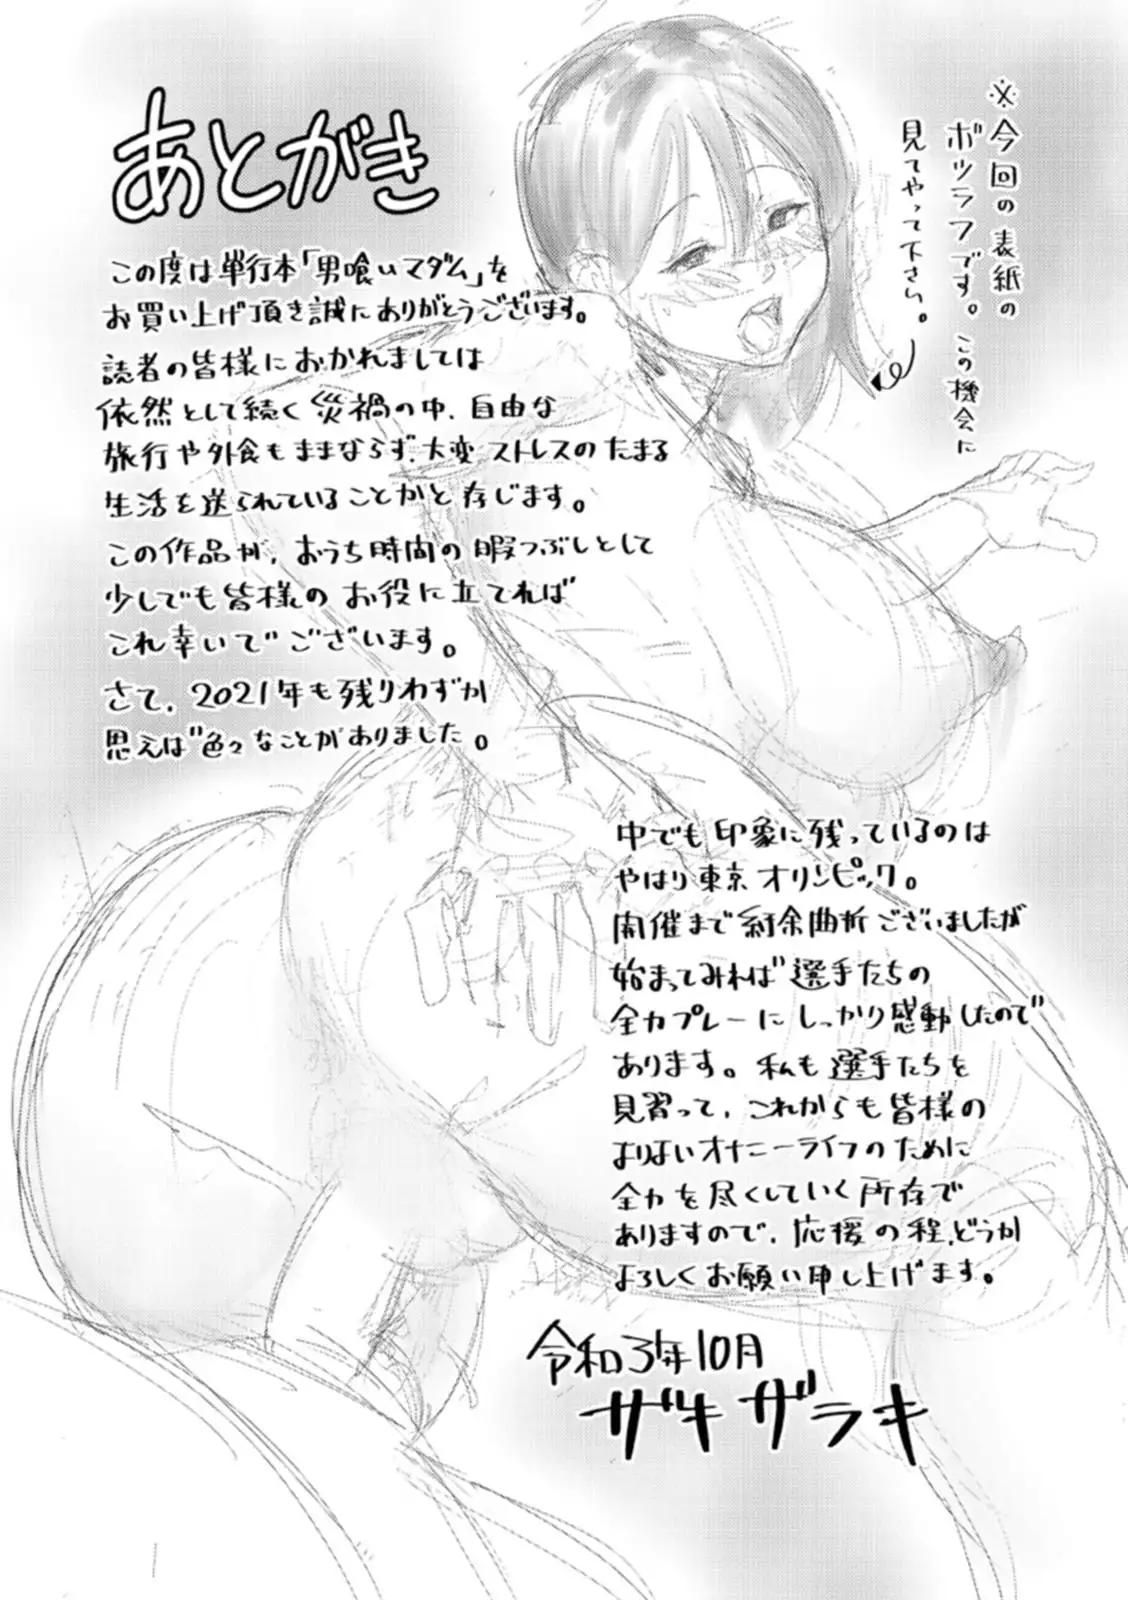 あとがき
この度は単行本「男喰いマダム」を
お買い上げ頂き誠にありがとうございます。
読者の皆様におかれましては
依然として続く災禍の中、自由な
旅行や外食もままならず、大変ストレスのたまる
生活を送られていることかと存じます。
この作品が、おうち時間の暇つぶしとして
少しでも皆様のお役に立てれば
これ幸いでございます。
さて、2021年も残りわずか
思えば色々なことがありました。
※今回の表紙の
ボツラフです。この機会に
見てやって下さい。
中でも印象に残っているのは
やはり東京オリンピック。
開催まで紆余曲折ございましたが
始まってみれば選手たちの
全力プレーにしっかり感動したので
あります。私も選手たちを
見習って、これからも皆様の
よりよいオナニーライフのために
全力を尽くしていく所存で
ありますので、応援の程、どうか
よろしくお願い申し上げます。
令和3年10月
ザキザラキ